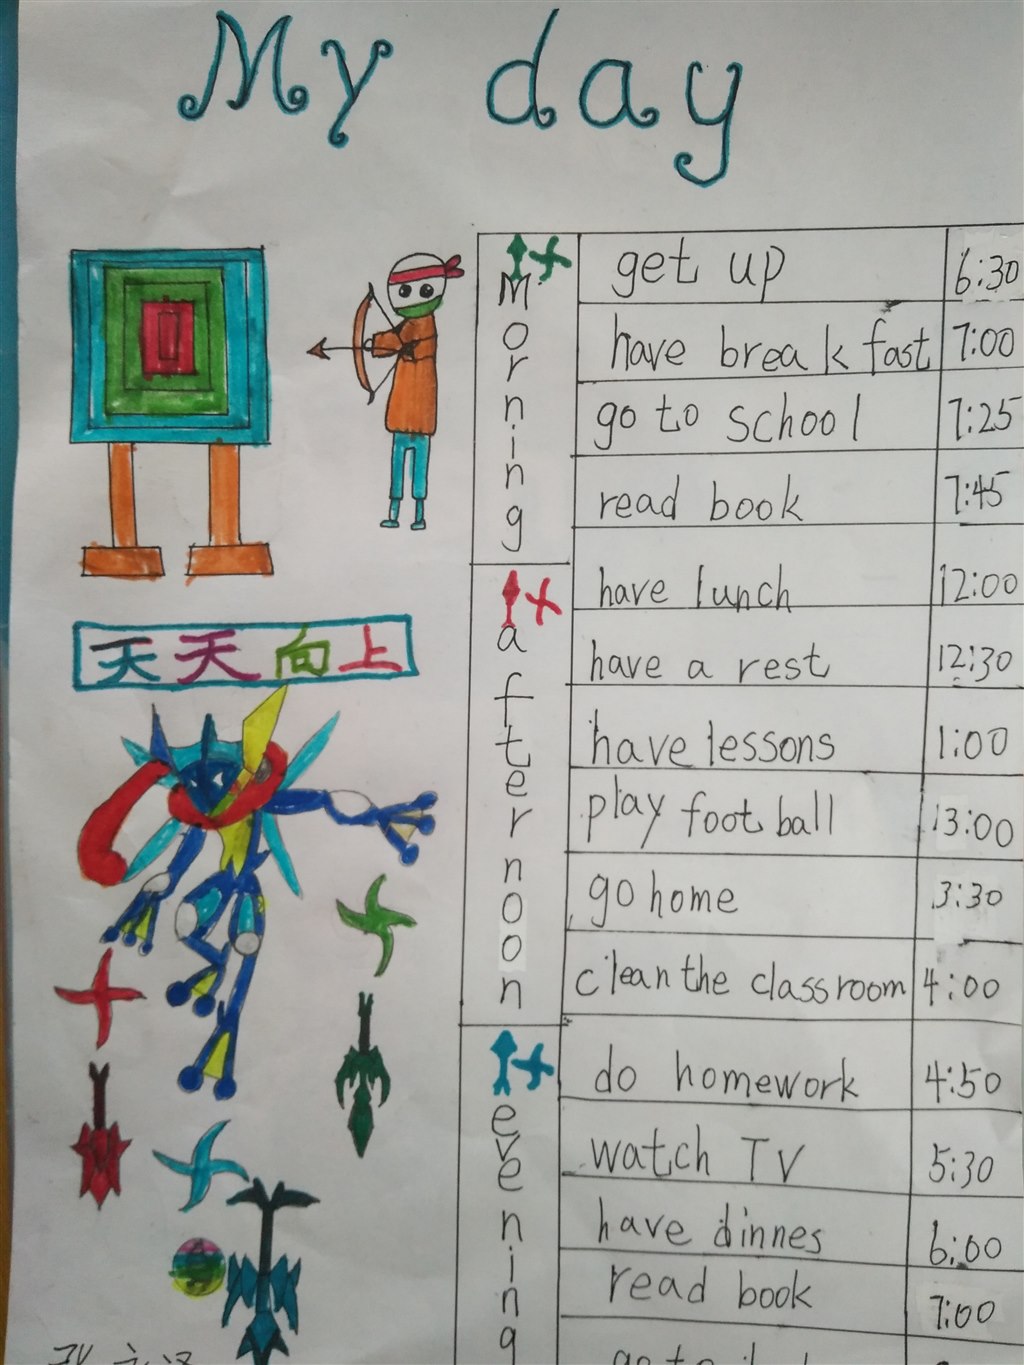 My day
Morning
get up 6:30
have breakfast 7:00
go to school 7:25
read book 7:45
afternoon
have lunch 12:00
have a rest 12:30
have lessons 1:00
play football 13:00
go home 3:30
clean the classroom 4:00
evening
do homework 4:50
watch TV 5:30
have dinnes 6:00
read book 7:00
go to
天天向上